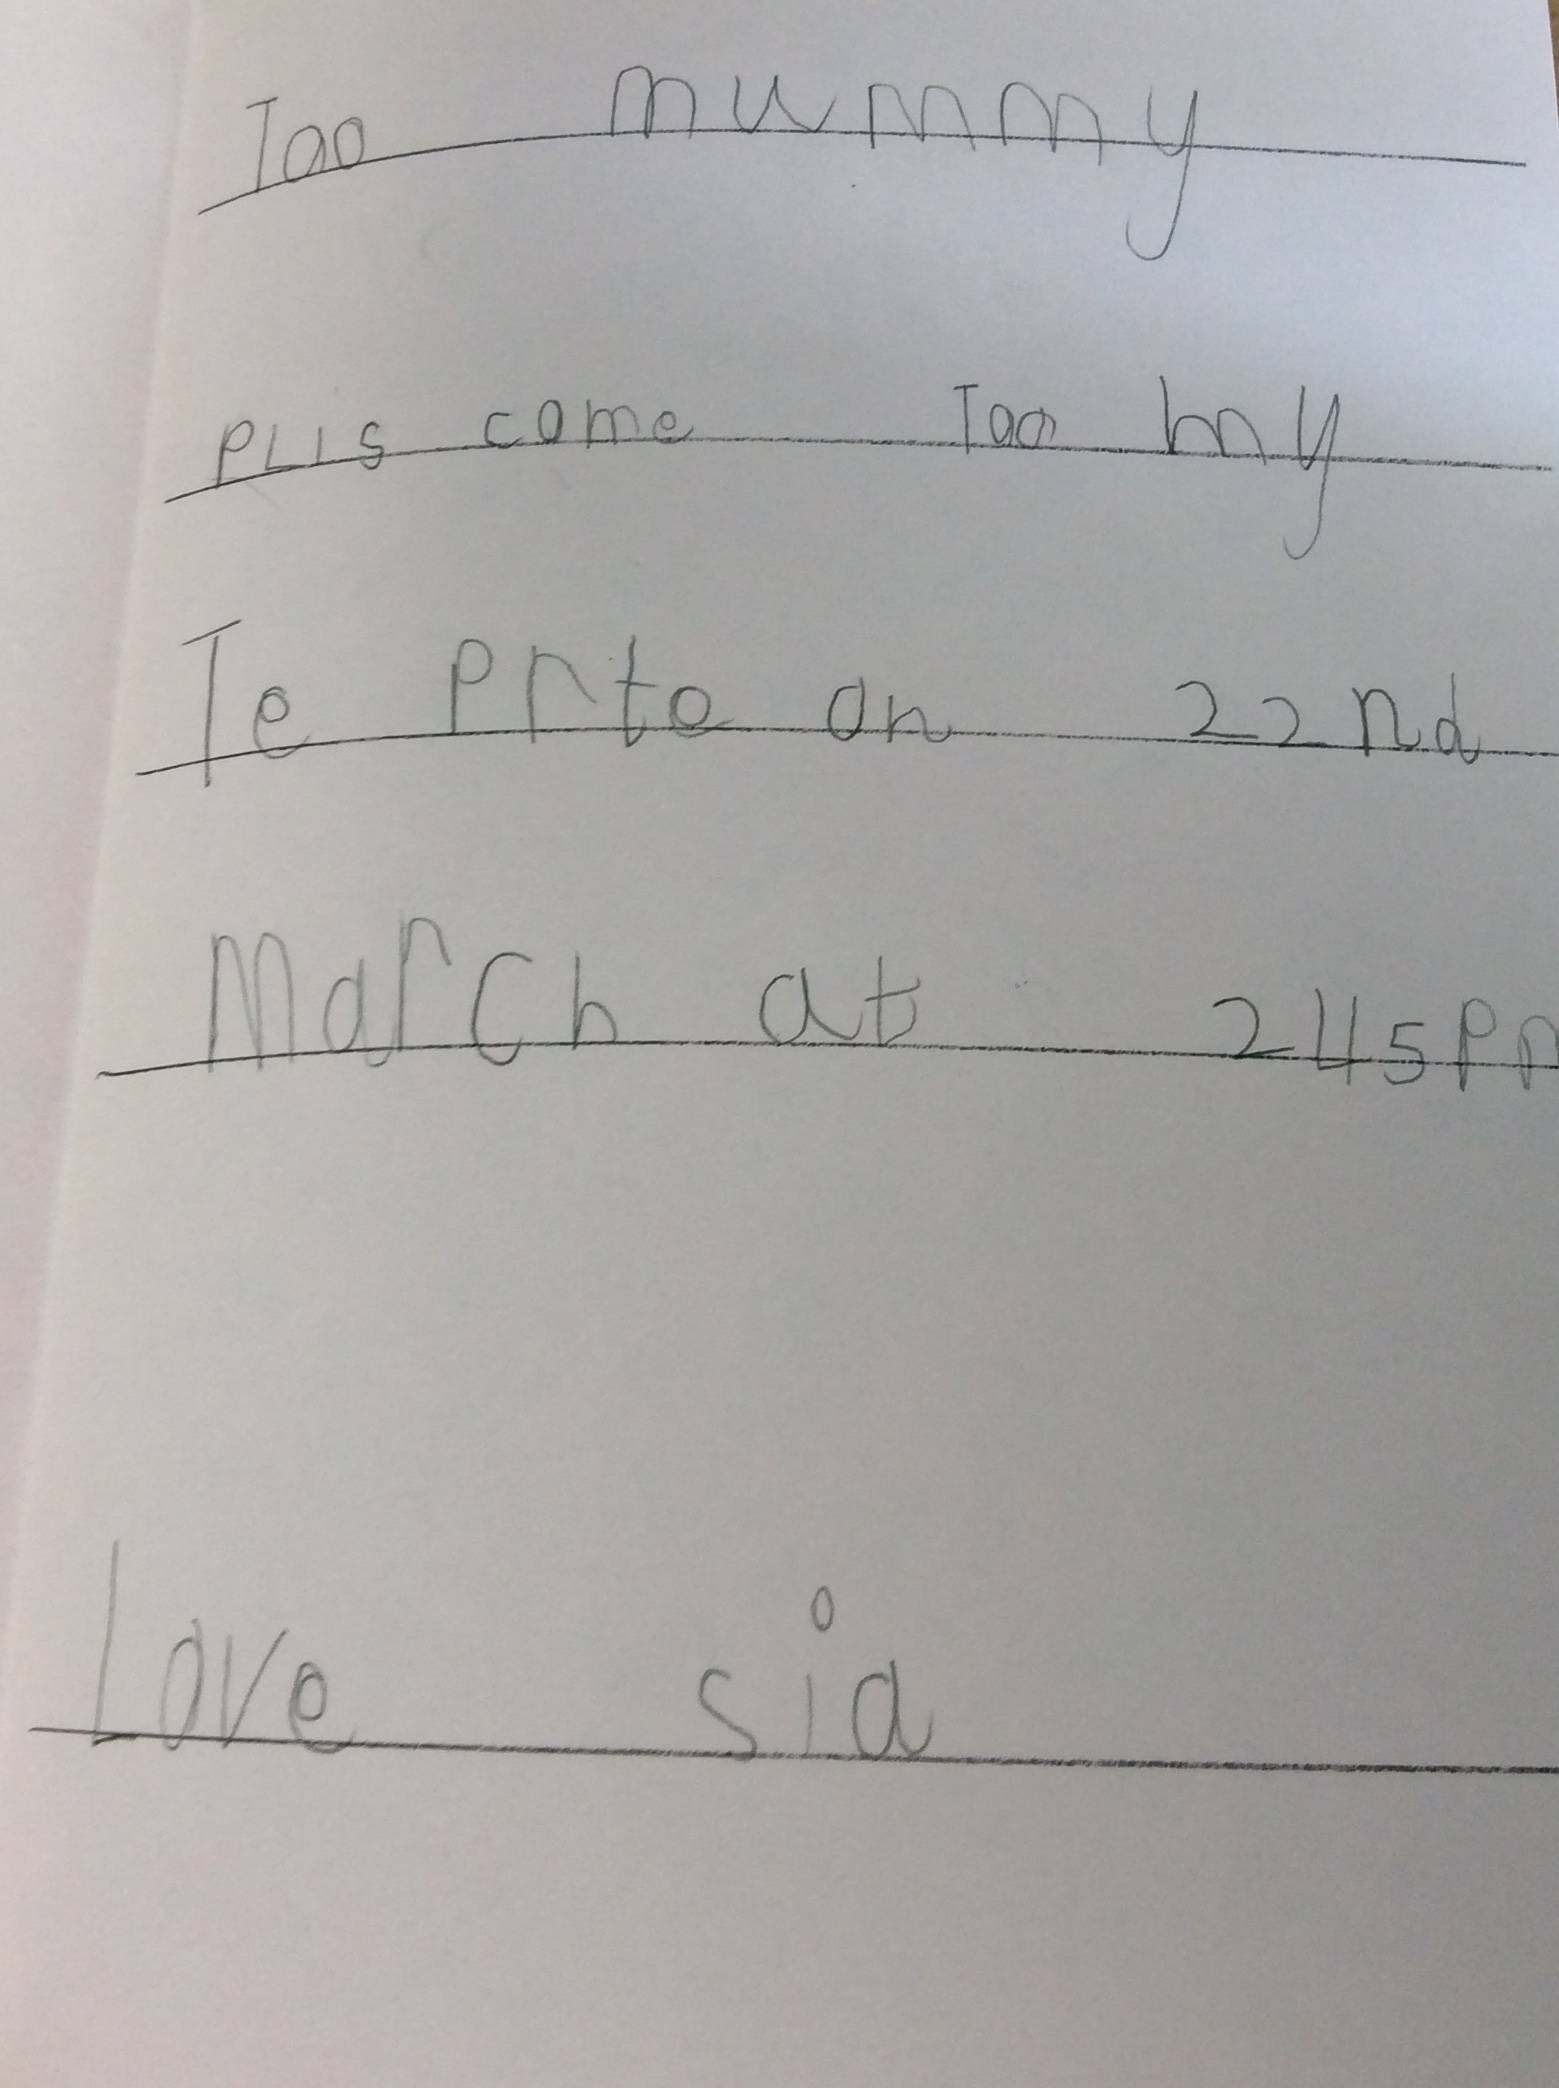 Too mummy
PLIS come Too my
Te Prte on 22nd
March at 245Pm
Love sid